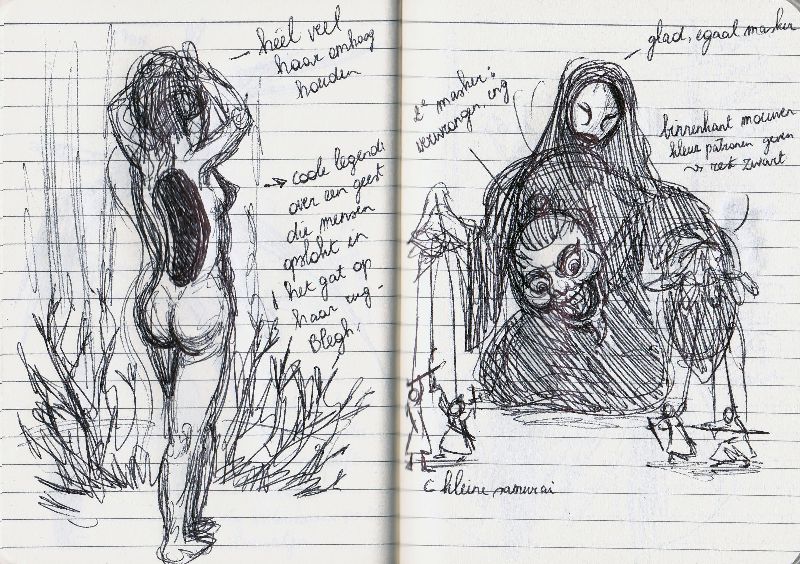 – héél veel
haar omhoog
houden
→ coole legende
over een geest
die mensen
opslokt in
het gat op
haar rug-
Blegh!
glad, egaal masker
2e masker:
verwrongen, eng
binnenkant mouwen
kleur patronen geven
↝ rest zwart
kleine samurai